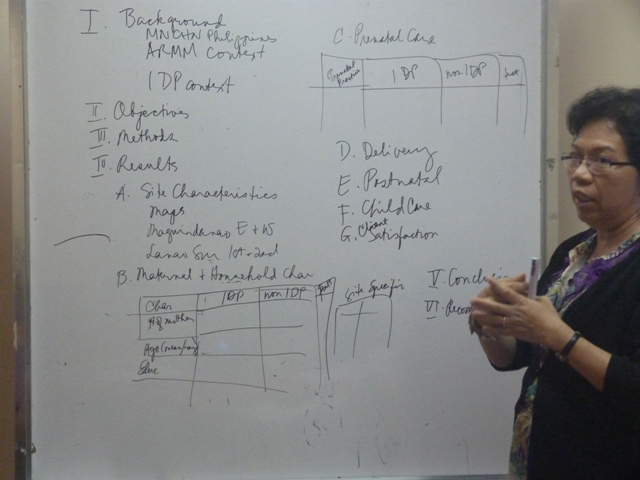 I. Background
MNCHN Philippines
ARMM Context
IDP context
II. Objectives
III. Methods
IV. Results
A. Site Characteristics
maps
Maguindanao E + W
Lanao Sur 1st - 2nd
B. Maternal + Household Char
Char IDP non IDP
# of mothers
Age (mean/
Educ
Site Specific
C. Prenatal Care
Prenatal Practices IDP non IDP
D. Delivery
E. Postnatal
F. Child Care
G. Client Satisfaction
V. Conclusion
VI. Recom